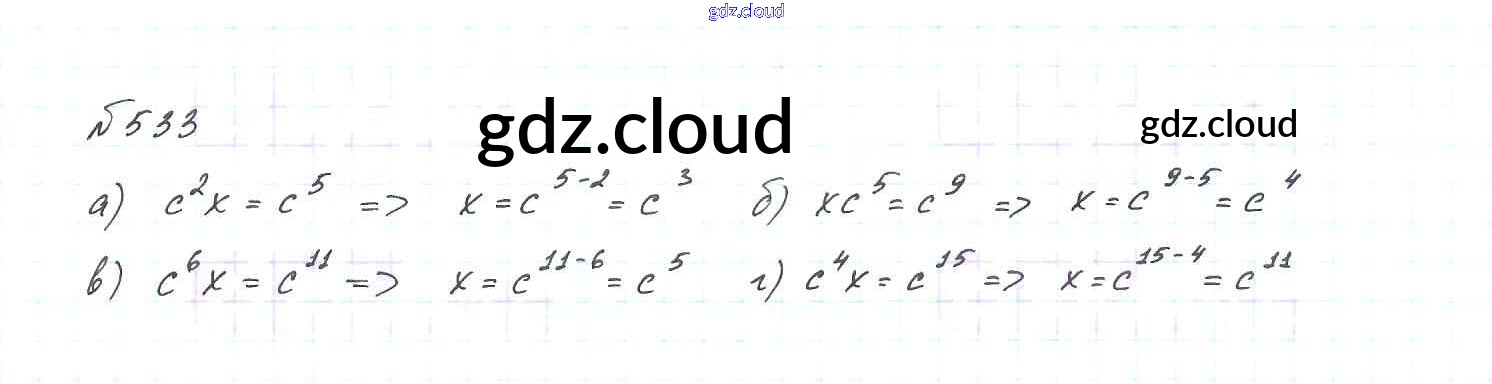 gdz.cloud
№533
gdz.cloud
gdz.cloud
а) c²x = c⁵ => x = c⁵⁻² = c³ б) xc⁵ = c⁹ => x = c⁹⁻⁵ = c⁴
в) c⁶x = c¹¹ => x = c¹¹⁻⁶ = c⁵ г) c⁴x = c¹⁵ => x = c¹⁵⁻⁴ = c¹¹